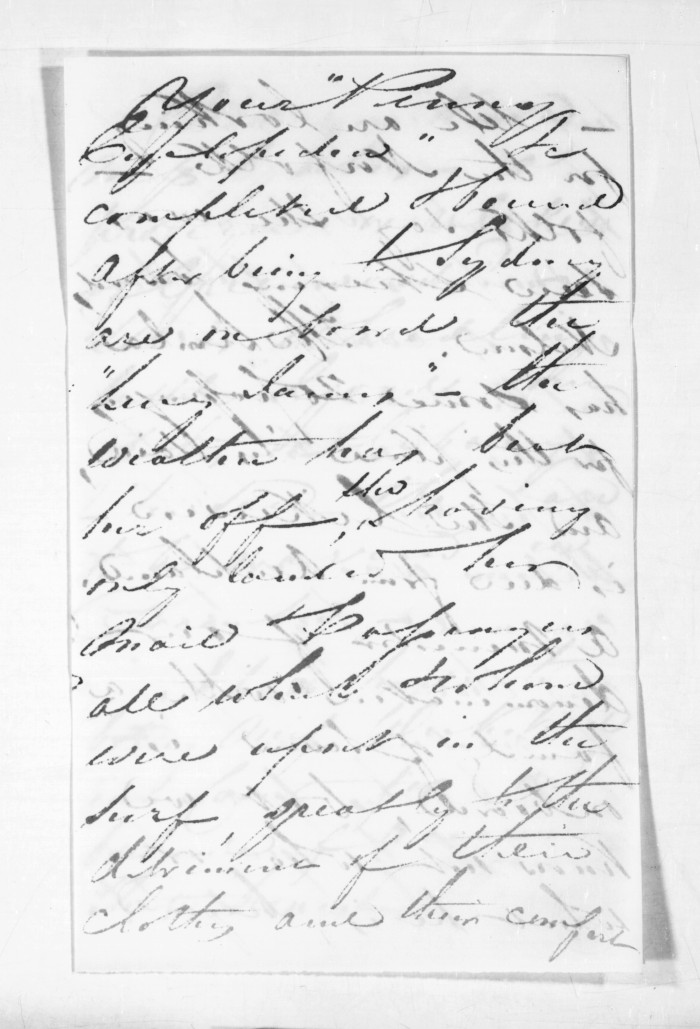 Your "Penny
Cyclopedia" &c
completed & bound
after being to Sydney
are on board the
"   " - the
weather has beat
her off, tho having
only landed her
mail & passengers
all which & whom
were upset in the
surf, greatly to the
detriment of their
clothes and their comfort